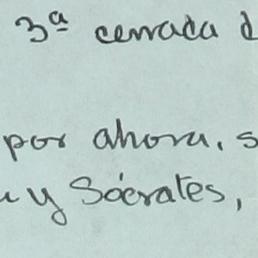 3ª cerrada d
por ahora, s
y Sócrates,